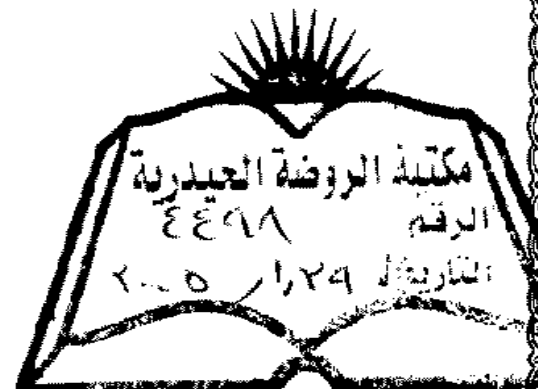 مكتبة الروضة الحيدرية
الرقم ٤٤٩٨
التاريخ ٢٩ / ١ / ٢٠٠٥